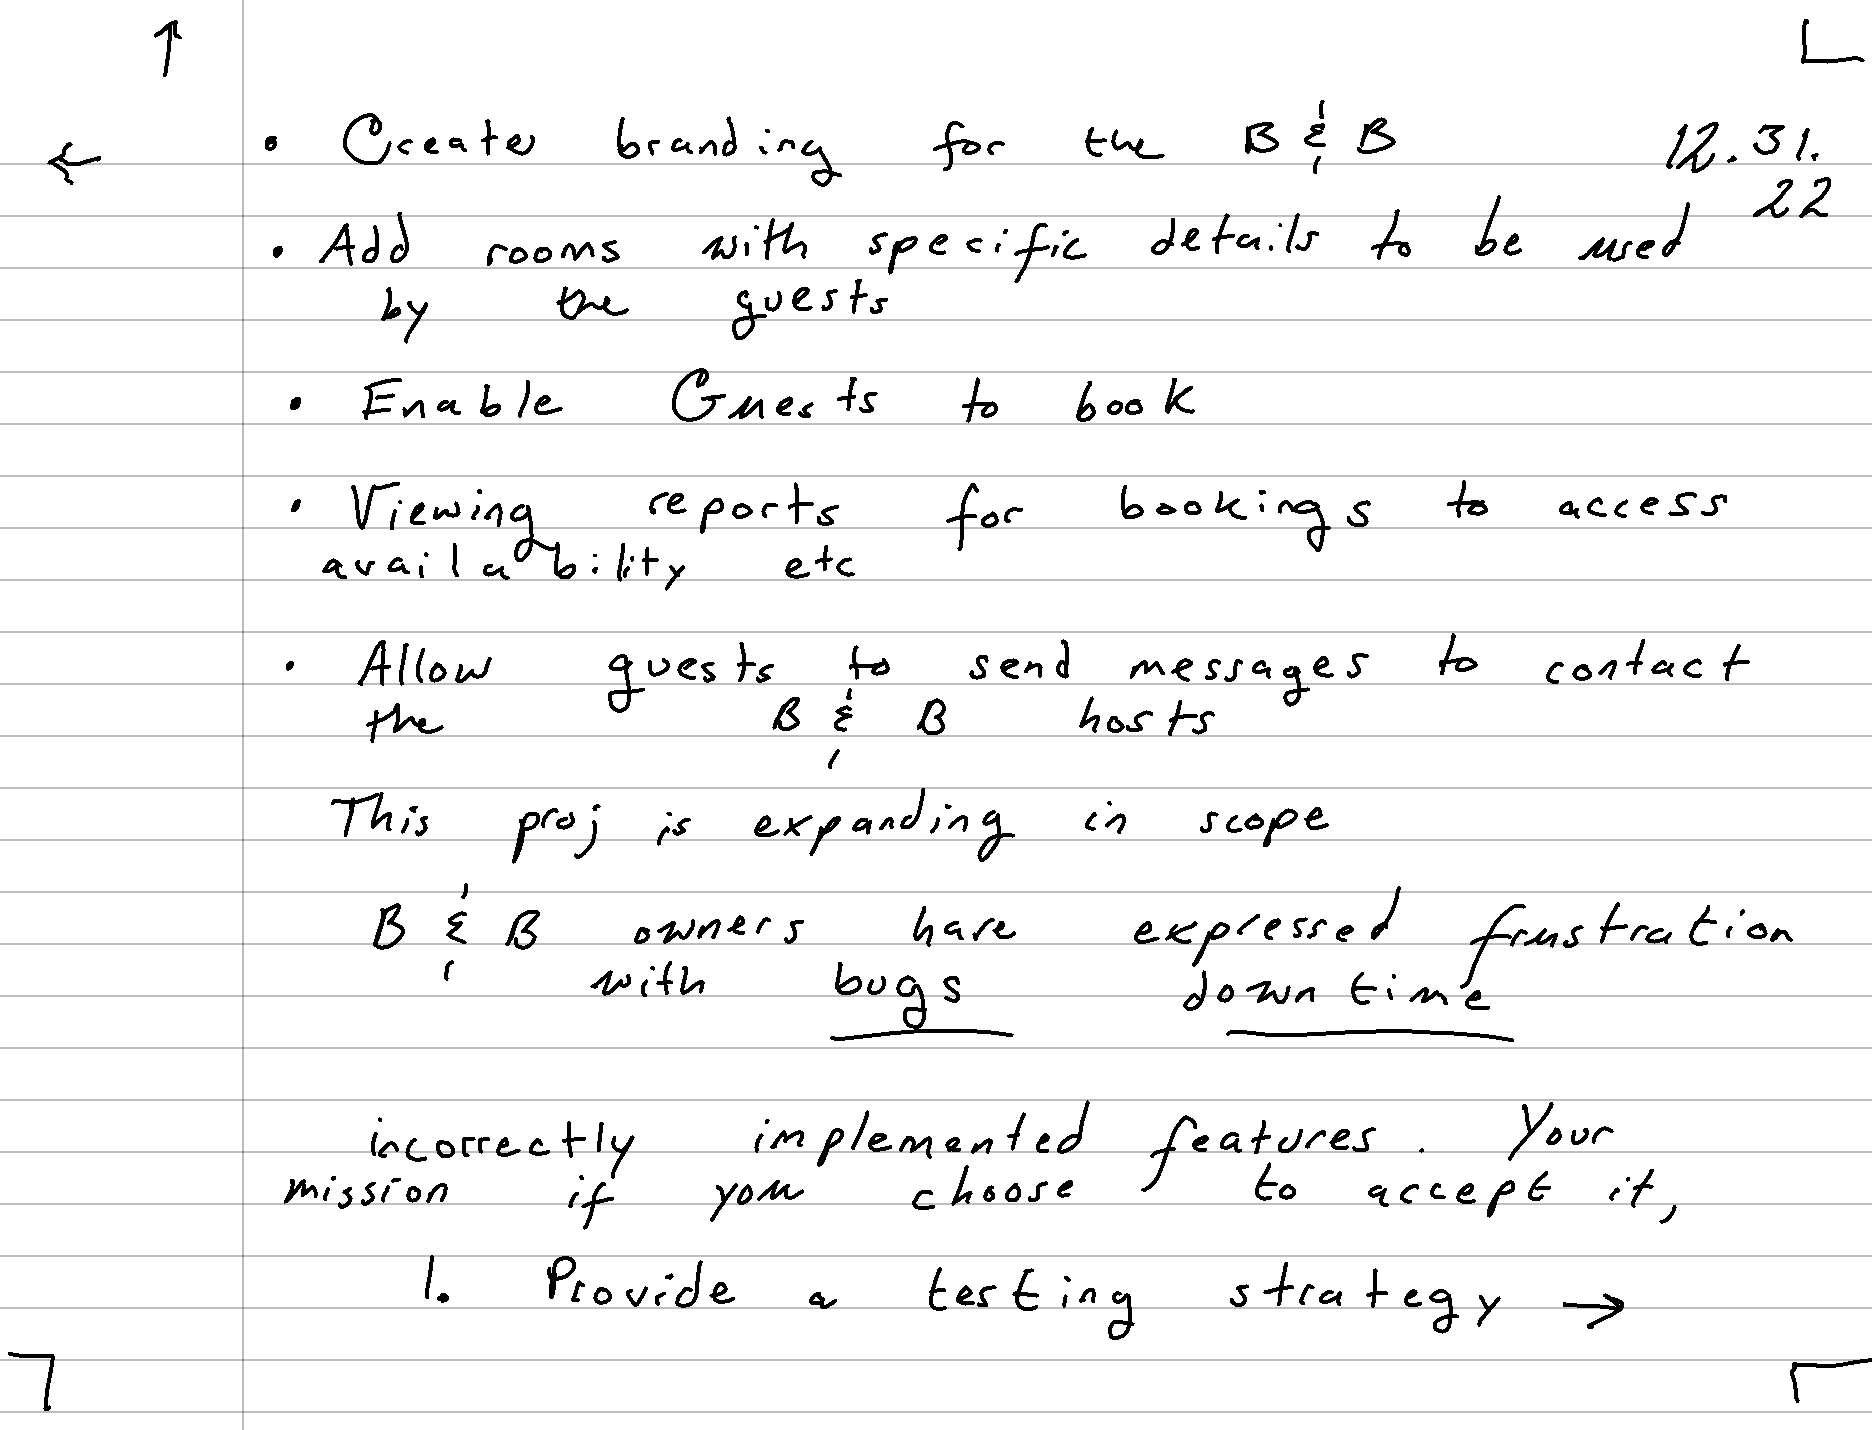 • Create branding for the B & B 12.31.
22
• Add rooms with specific details to be used
by the guests
• Enable Guests to book
• Viewing reports for bookings to access
availability etc
• Allow guests to send messages to contact
the B & B hosts
This proj is expanding in scope
B & B owners have expressed frustration
with bugs downtime
incorrectly implemented features. Your
mission if you choose to accept it,
1. Provide a testing strategy →